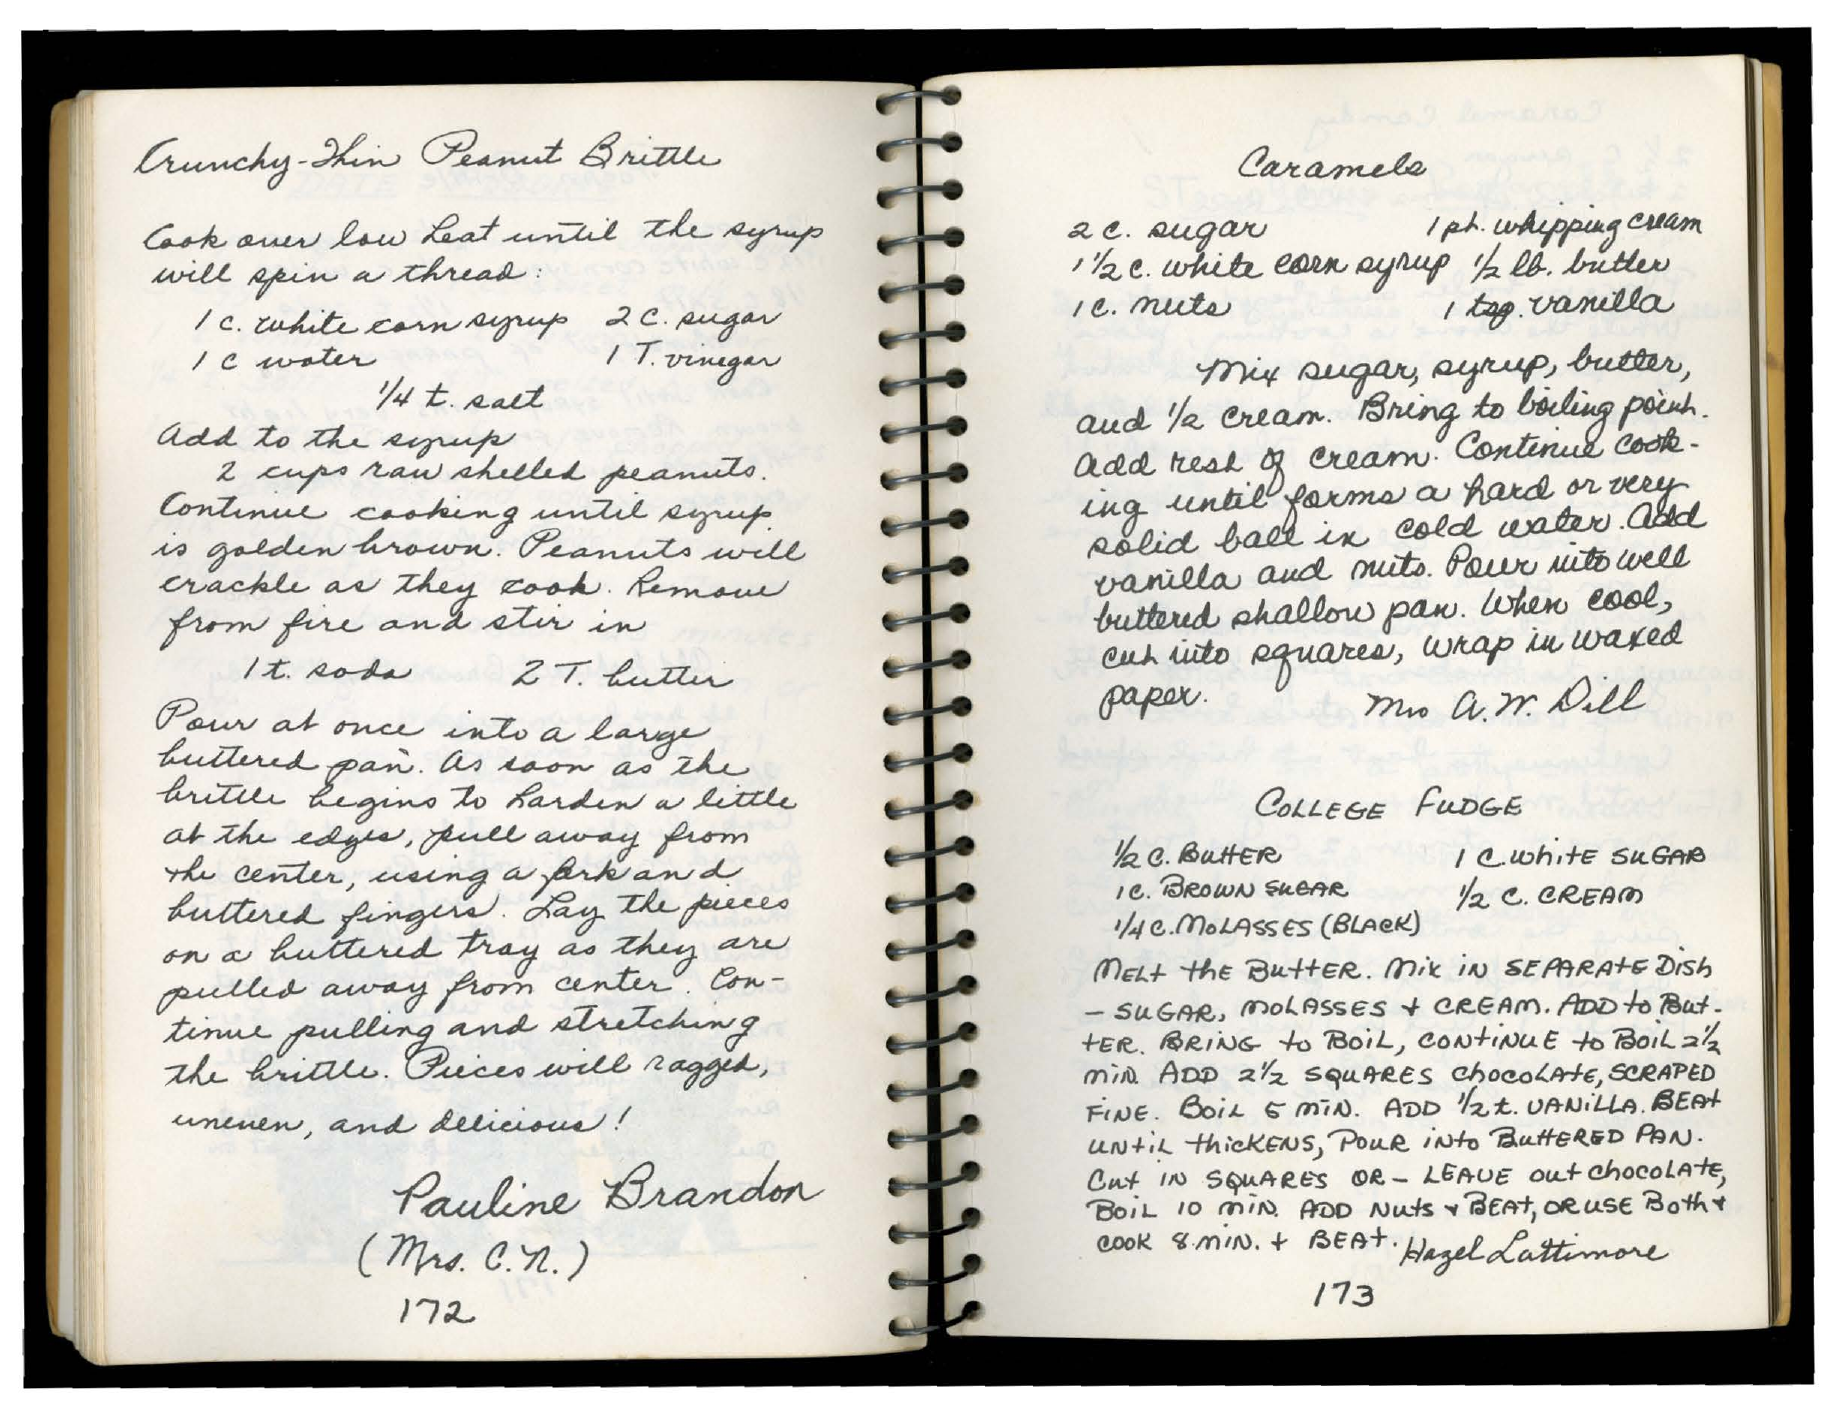 Crunchy-Thin Peanut Brittle
Cook over low heat until the syrup
will spin a thread:
1 c. white corn syrup 2 C. sugar
1 c water 1 T. vinegar
1/4 t. salt
Add to the syrup
2 cups raw shelled peanuts.
Continue cooking until syrup
is golden brown. Peanuts will
crackle as they cook. Remove
from fire and stir in
1 t. soda 2 T. butter
Pour at once into a large
buttered pan. As soon as the
brittle begins to harden a little
at the edges, pull away from
the center, using a fork and
buttered fingers. Lay the pieces
on a buttered tray as they are
pulled away from center. Con-
tinue pulling and stretching
the brittle. Pieces will ragged,
uneven, and delicious!
Pauline Brandon
(Mrs. C. N.)
172
Caramels
2 c. sugar 1 pt. whipping cream
1 1/2 c. white corn syrup 1/2 lb. butter
1 c. nuts 1 tsp. vanilla
Mix sugar, syrup, butter,
and 1/2 cream. Bring to boiling point.
Add rest of cream. Continue cook-
ing until forms a hard or very
solid ball in cold water. Add
vanilla and nuts. Pour into well
buttered shallow pan. When cool,
cut into squares, wrap in waxed
paper.
Mrs A. W. Dill
COLLEGE FUDGE
1/2 C. BUTTER 1 C. WHITE SUGAR
1 C. BROWN SUGAR 1/2 C. CREAM
1/4 C. MOLASSES (BLACK)
MELT THE BUTTER. MIX IN SEPARATE DISH
- SUGAR, MOLASSES + CREAM. ADD TO BUT-
TER. BRING TO BOIL, CONTINUE TO BOIL 2 1/2
MIN. ADD 2 1/2 SQUARES CHOCOLATE, SCRAPED
FINE. BOIL 5 MIN. ADD 1/2 t. VANILLA. BEAT
UNTIL THICKENS, POUR INTO BUTTERED PAN.
CUT IN SQUARES OR - LEAVE OUT CHOCOLATE,
BOIL 10 MIN. ADD NUTS + BEAT, OR USE BOTH +
COOK 8 MIN. + BEAT.
Hazel Lattimore
173